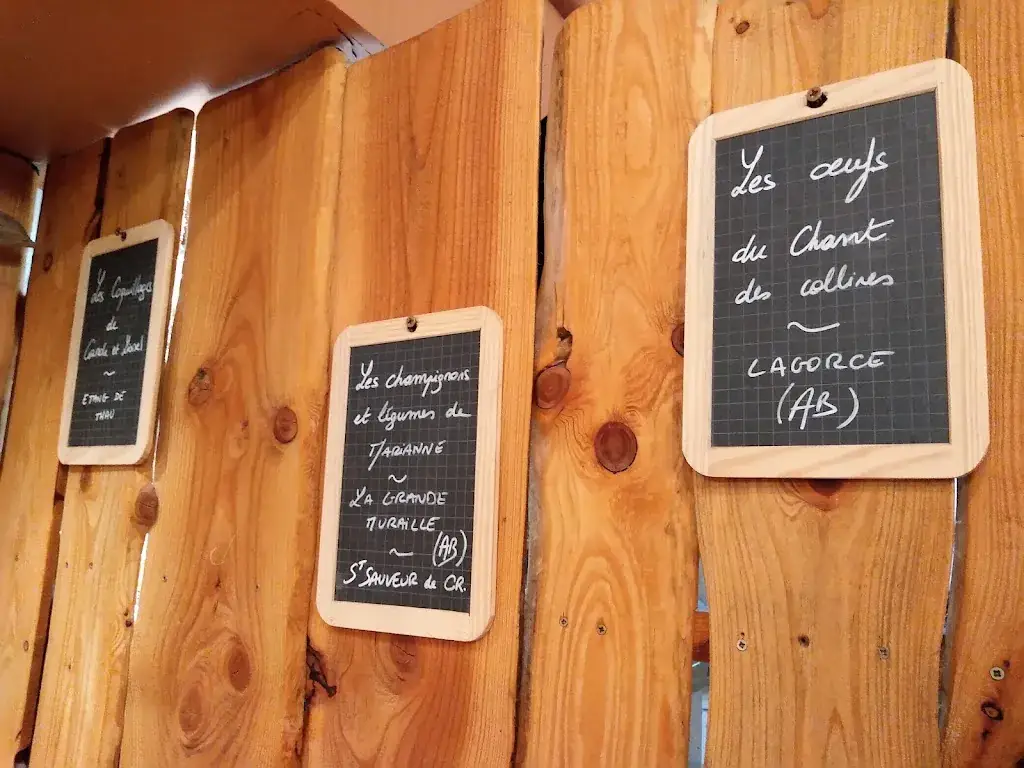 Les Coquillages
de
Carole et Lionel
~
ETANG DE
THAU
Les champignons
et légumes de
MARIANNE
~
LA GRANDE
MURAILLE
(AB)
~
ST SAUVEUR de CR.
Les œufs
du Chant
des collines
~
LAGORCE
(AB)